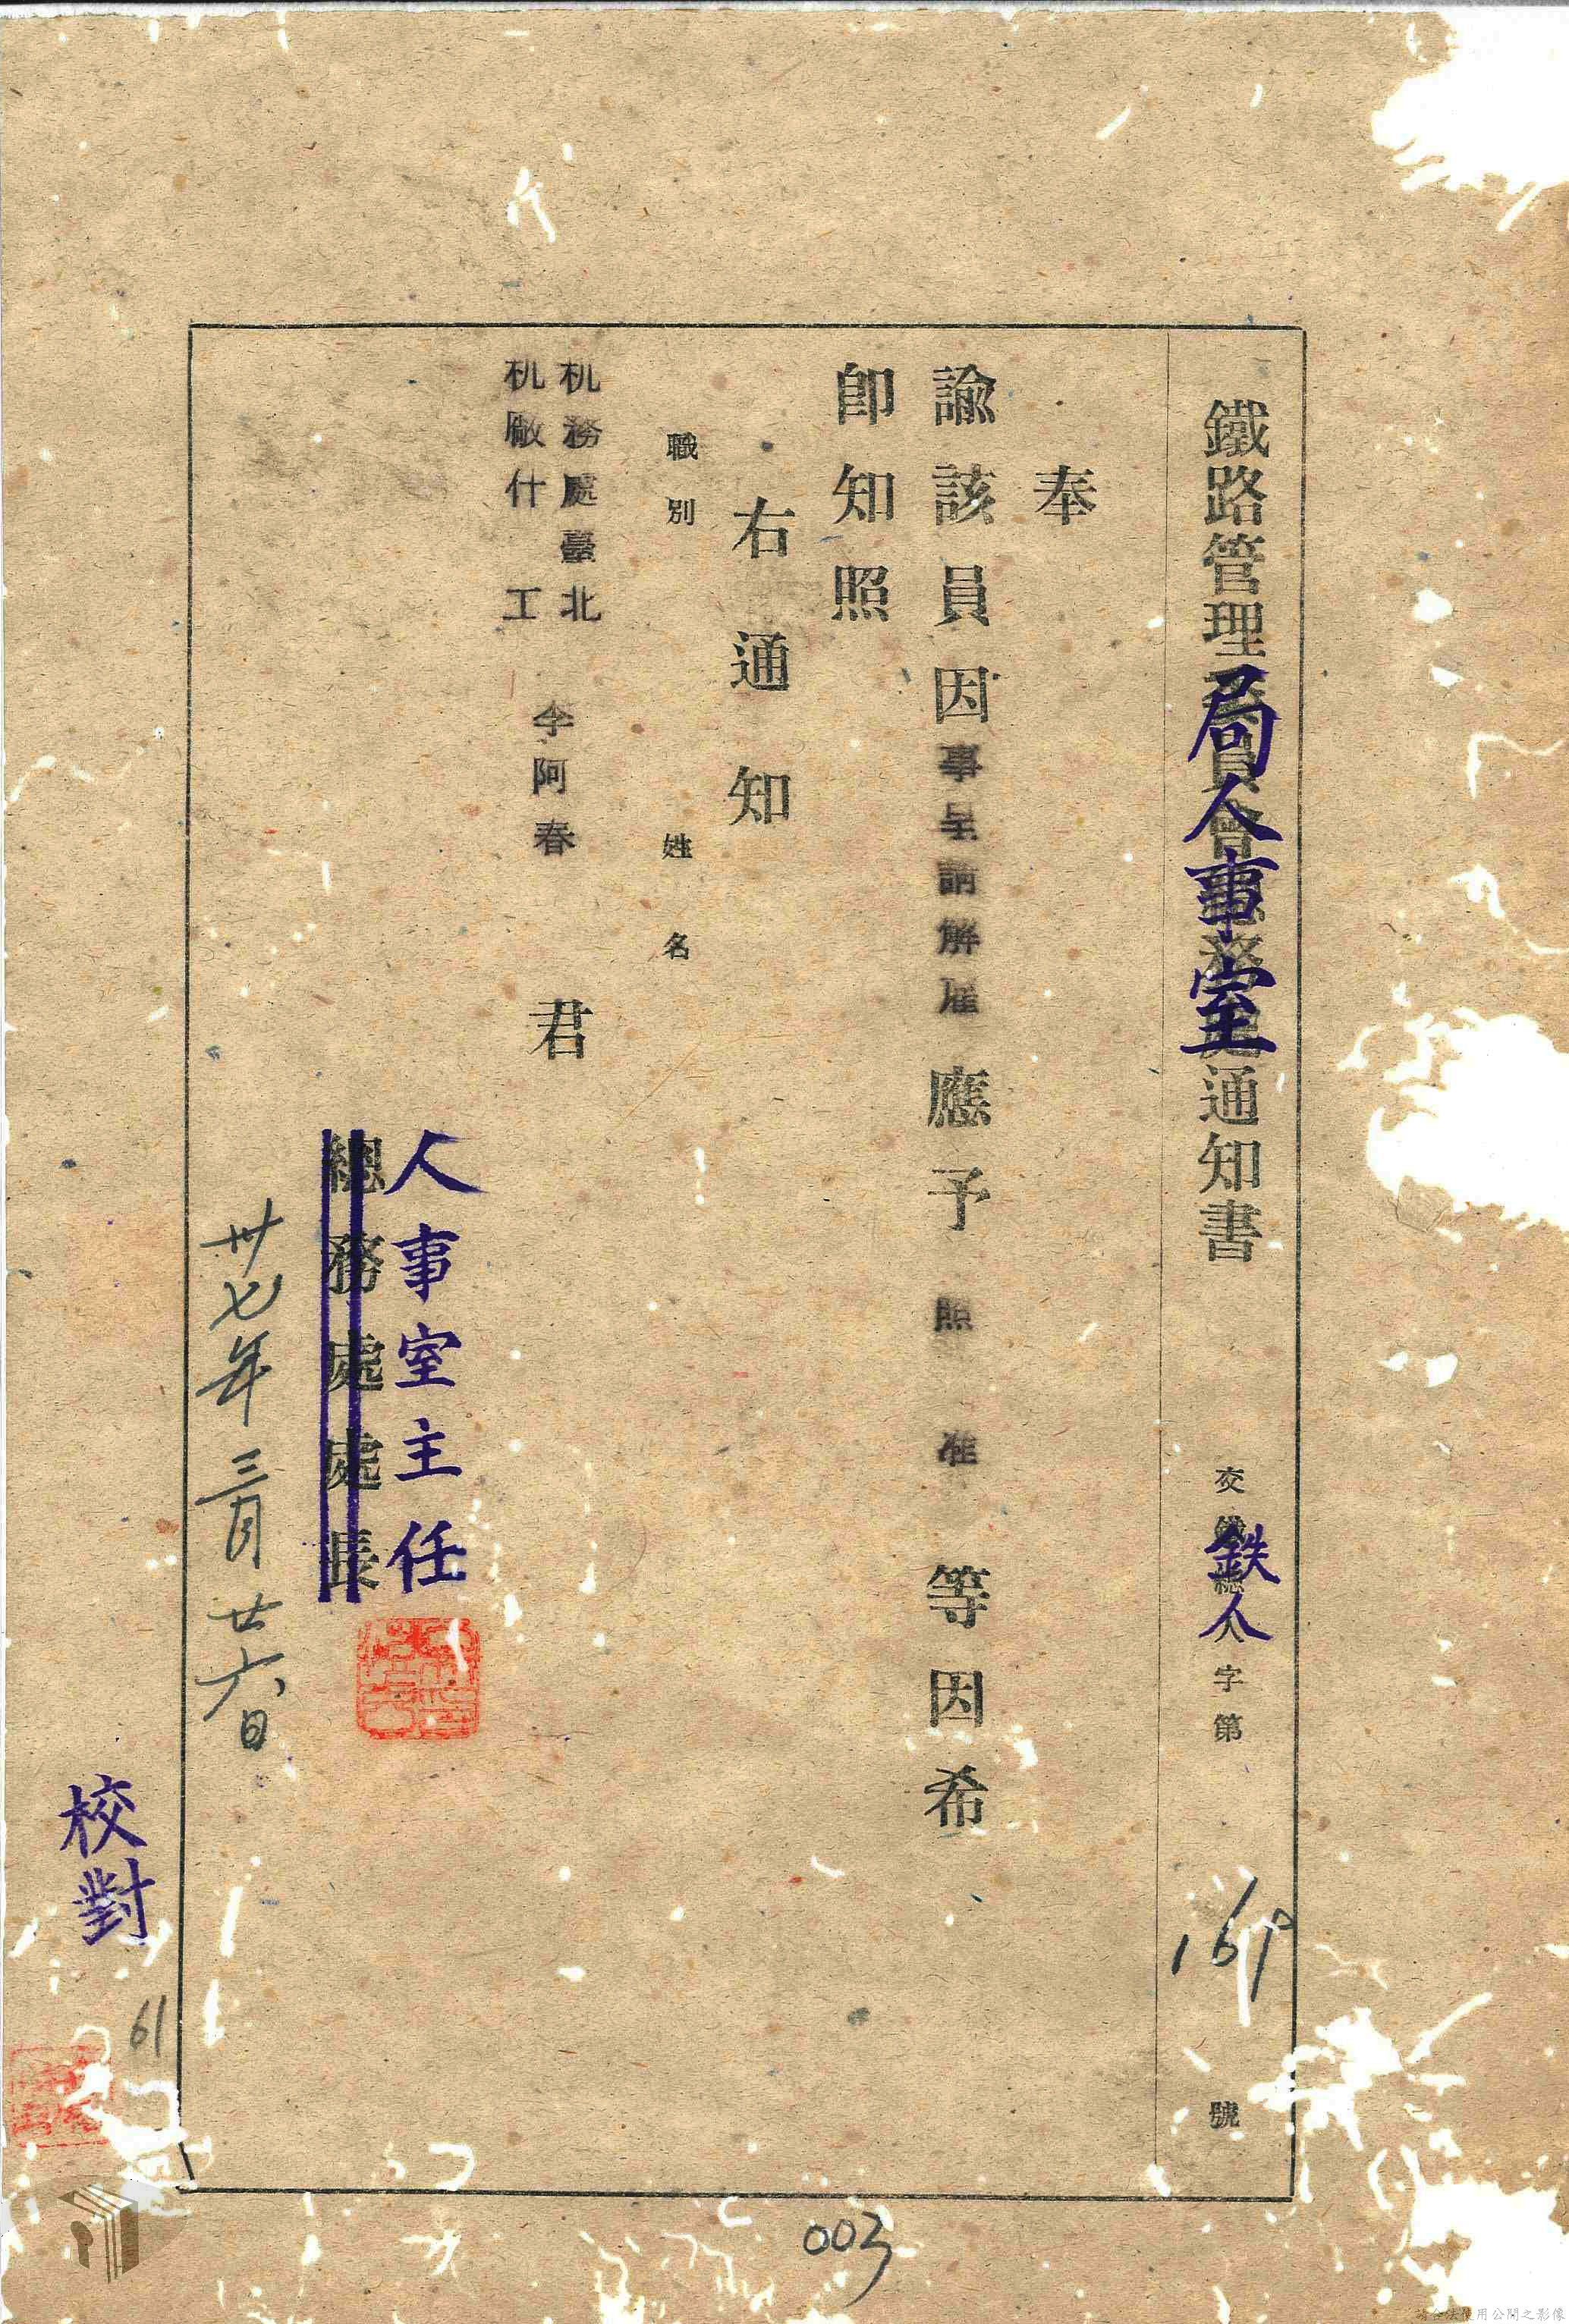 鐵路管理局人事室通知書
交鉄人字第169號
奉
諭該員因事呈請解雇應予照准等因希
卽知照
右通知
職別 姓名
机務處臺北
机廠什工
李阿春 君
人事室主任
總務處處長
卅七年三月廿六日
校對
61
003
請合法使用公開之影像